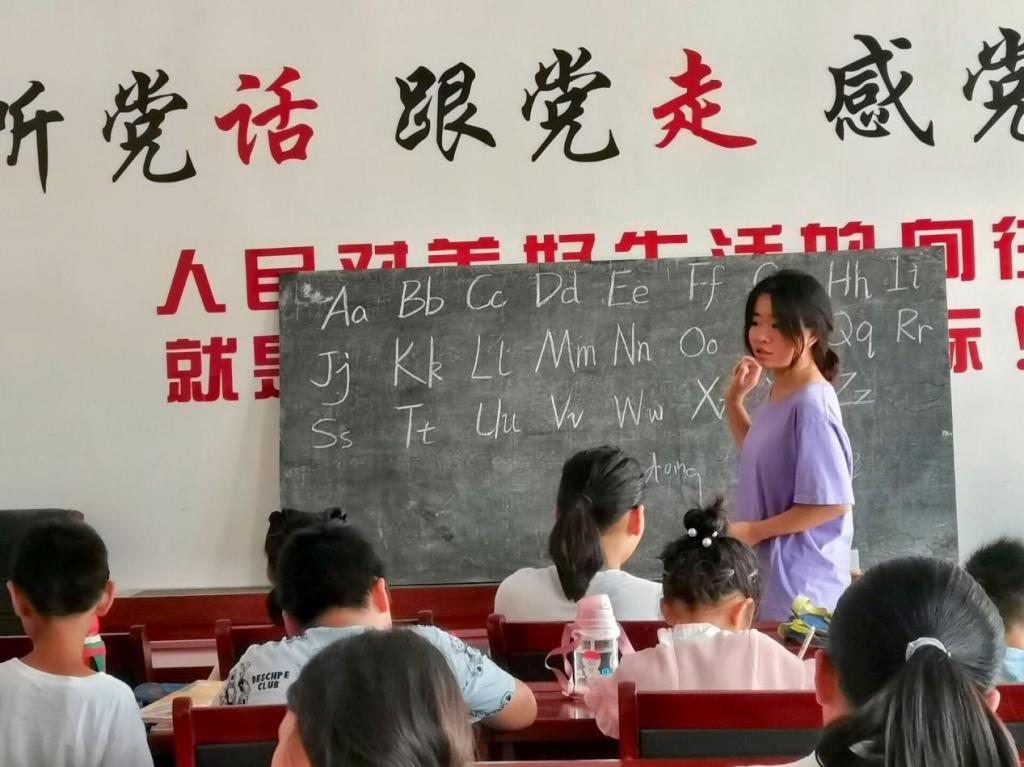 听党话 跟党走 感党
人民对美好生活的向往
就是 标！
Aa Bb Cc Dd Ee Ff G Hh Ii
Jj Kk Ll Mm Nn Oo Qq Rr
Ss Tt Uu Vv Ww X Zz
DESCHPE
CLUB